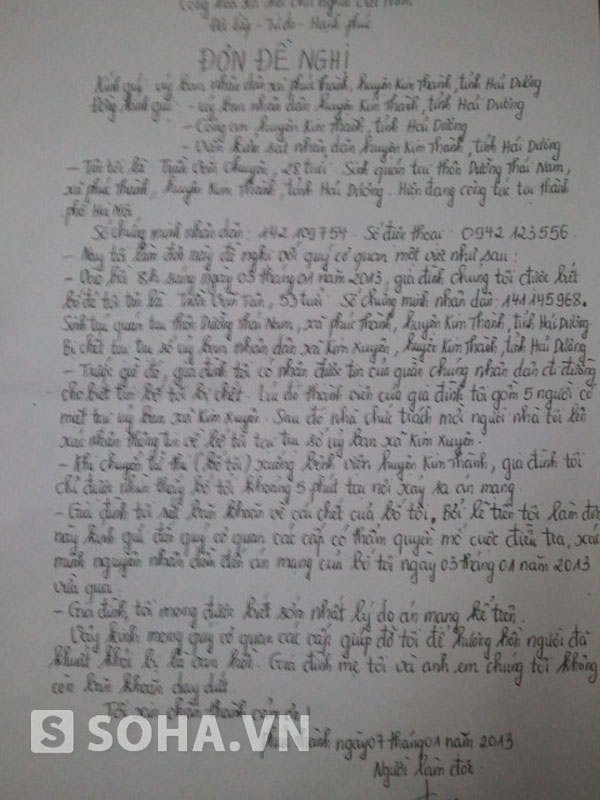 Cộng hòa xã hội chủ nghĩa Việt Nam
Độc lập - Tự do - Hạnh phúc
ĐƠN ĐỀ NGHỊ
Kính gửi: uỷ ban nhân dân xã phúc Thành, huyện Kim Thành, tỉnh Hải Dương
Đồng kính gửi: - uỷ ban nhân dân huyện Kim Thành, tỉnh Hải Dương
- Công an huyện Kim Thành, tỉnh Hải Dương
- Viện kiểm sát nhân dân huyện Kim Thành, tỉnh Hải Dương
- Tên tôi là Trần Văn Chuyên, 28 tuổi. Sinh quán tại thôn Dưỡng Thái Nam,
xã phúc Thành, huyện Kim Thành, tỉnh Hải Dương. Hiện đang công tác tại thành
phố Hà Nội
Số chứng minh nhân dân: 142 109754. Số điện thoại: 0942 123556
- Nay tôi làm đơn này đề nghị với quý cơ quan một việc như sau:
- Vào hồi 8h sáng ngày 03 tháng 01 năm 2013, gia đình chung tôi được biết
bố đẻ tôi tên là: Trần Văn, 53 tuổi. Số chứng minh nhân dân: 141145968.
Sinh quán tại thôn Dưỡng Thái Nam, xã phúc Thành, huyện Kim Thành, tỉnh Hải Dương
Bị chết tại trụ sở uỷ ban nhân dân xã Kim Xuyên, huyện Kim Thành, tỉnh Hải Dương
- Trước giờ đó, gia đình tôi có nhận được tin của quần chúng nhân dân đi đường
cho biết tin bố tôi bị chết. Lúc đó thành viên của gia đình tôi gồm 5 người có
mặt tại uỷ ban xã Kim Xuyên. Sau đó nhà chức trách mời người nhà tôi lên
xác nhận thông tin về bố tôi tại trụ sở uỷ ban xã Kim Xuyên.
- Khi chuyển tử thi (bố tôi) xuống bệnh viện huyện Kim Thành, gia đình tôi
chỉ được nhìn thấy bố tôi khoảng 5 phút tại nơi xảy ra án mạng
- Gia đình tôi rất băn khoăn về cái chết của bố tôi. Bởi lẽ trên tôi làm đơn
này kính gửi đến quý cơ quan các cấp có thẩm quyền mở cuộc điều tra, xác
minh nguyên nhân dẫn đến án mạng của bố tôi ngày 03 tháng 01 năm 2013
vừa qua.
- Gia đình tôi mong được biết sớm nhất lý do án mạng kể trên.
Vậy kính mong quý cơ quan các cấp giúp đỡ tôi để hương hồn người đã
khuất khỏi bị là oan hồn. Gia đình mẹ tôi và anh em chúng tôi không
còn băn khoăn day dứt.
Tôi xin chân thành cảm ơn!
phúc Thành ngày 07 tháng 01 năm 2013
Người làm đơn
S SOHA.VN